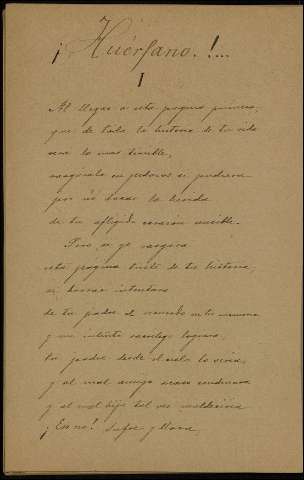 ¡Huérfano.!...
I
Al llegar a esta página primera,
que de toda la historia de tu vida
será la mas terrible,
rasgárala en pedazos si pudiera
por no tocar la herida
de tu afligido corazón sensible.
Pero, si yo rasgara
esta página triste de tu historia,
si borrar intentara
de tu padre el recuerdo en tu memoria
y mi intento sacrílego lograra,
tu padre desde el cielo lo viera,
y al mal amigo acaso
y al mal hijo tal vez maldeciría
¡Eso no! Sufre y llora,